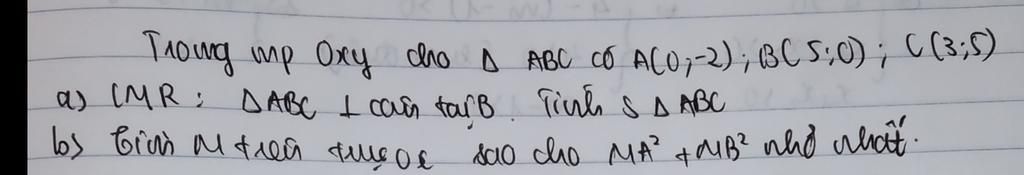 Trong mp Oxy cho Δ ABC có A(0;-2); B(5;0); C(3;5)
a) CMR: ΔABC ⊥ cân tại B. Tính S ΔABC
b) Tìm M trên trục Ox sao cho MA² + MB² nhỏ nhất.